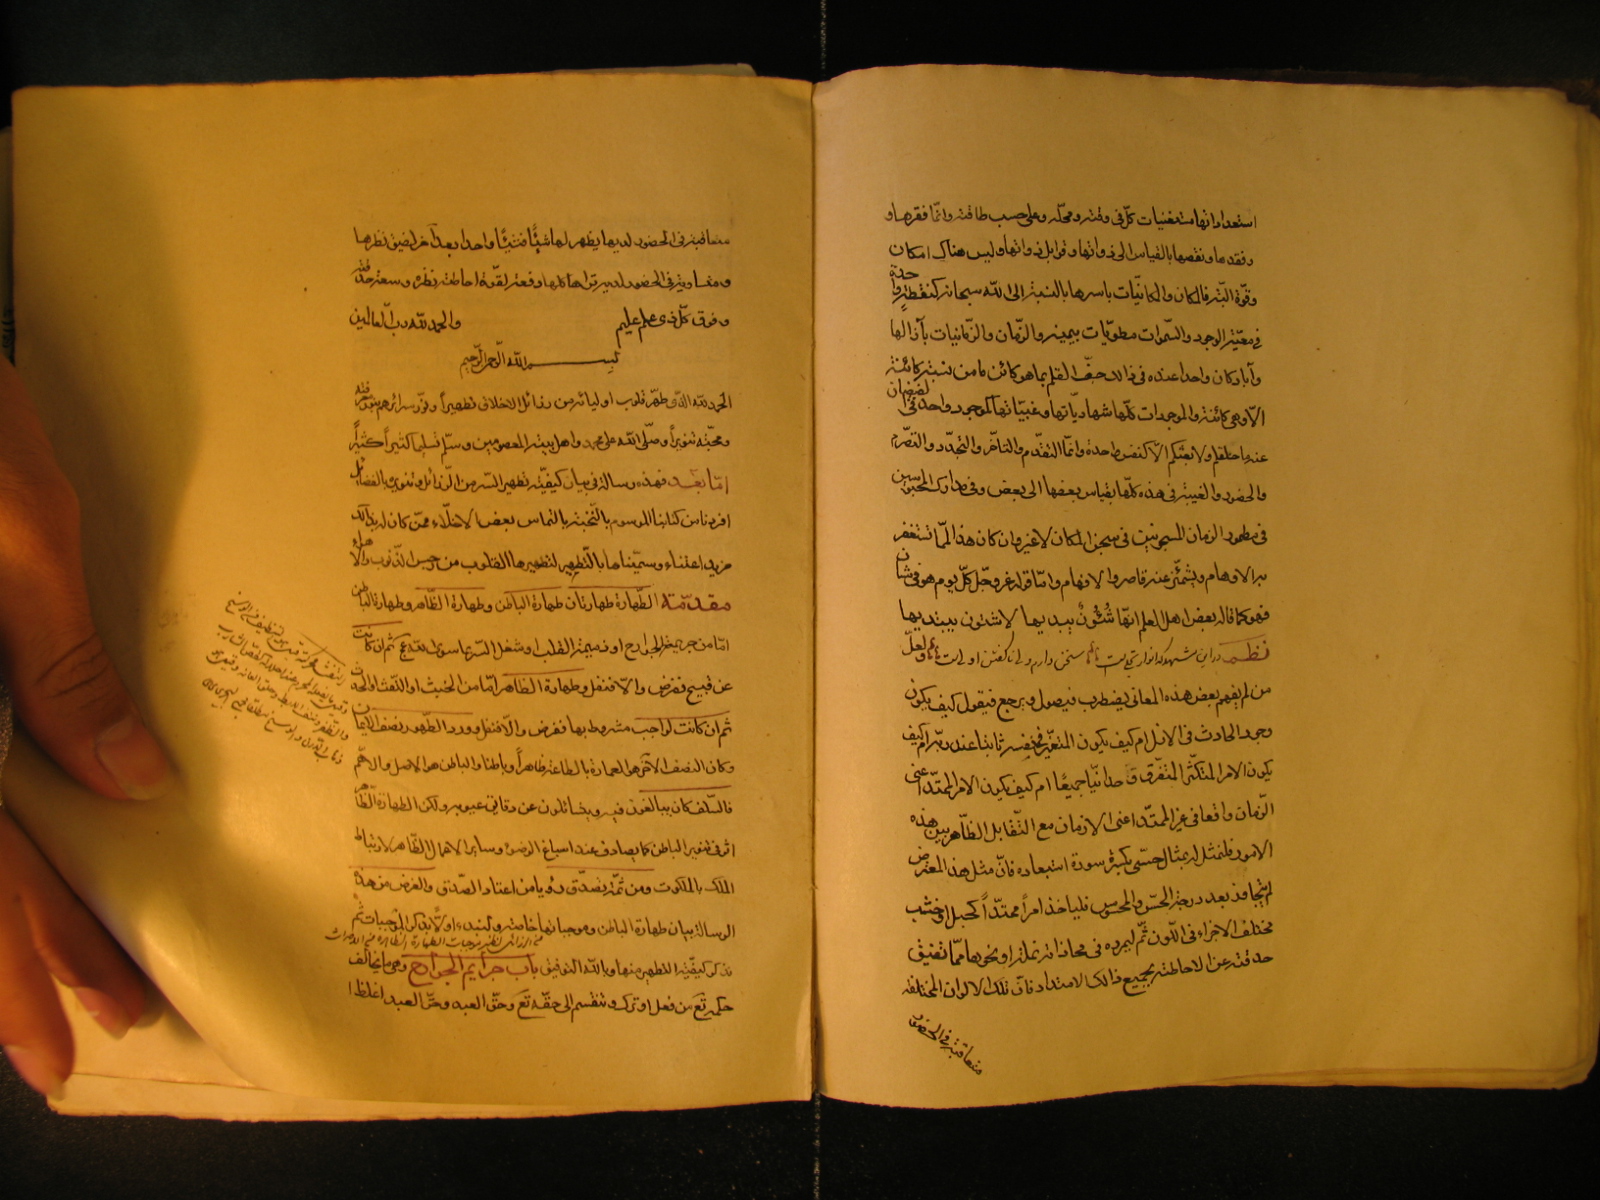 استعداداتها مستفيضات كلّ في وقته ومحلّه وعلى حسب طاقته وانّما فقرها و
وفقدها ونقصها بالقياس الى ذواتها وقوابل ذواتها وليس هناك امكان
وقوّة البتّة فالمكان والمكانيّات باسرها بالنسبة الى الله سبحانه كنقطة واحدة
في معيّة الوجود والسّموات مطويّات بيمينه والزّمان والزّمانيات بآزالها
وآبادها كان واحد عنده في ذلك جفّ القلم بما هو كائن ما من نسمة كائنة
الّا وهي كائنة والموجودات كلّها شهاديّاتها وغيبيّاتها كموجود واحد في الفيضان
عنه ما خلقكم ولا بعثكم الّا كنفس واحدة وانّما التقدّم والتأخّر والتجدّد والتصرّم
والحضور والغيبة في هذه كلّها بقياس بعضها الى بعض وفي مدارك المحبوسين
في مطمورة الزمان المسجونين في سجن المكان لا غير وان كان هذا لممّا تستغفر
به الاوهام ويشمئزّ عنه قاصروا الافهام وامّا قوله عزّ وجلّ كلّ يوم هو في شان
فهو كما قاله بعض اهل العلم انّها شُئُونٌ يبديها لا شئون يبتديها
نظم ولعلّ
من لم يفهم بعض هذه المعاني يضطرب فيصول ويرجع فيقول كيف يكون
وجود الحادث في الازل ام كيف يكون المتغيّر في نفسه ثابتا عند ربّه ام كيف
يكون الامر المتكثّر المتفرّق وحدانيّا جميعًا ام كيف يكون الامر الممتدّ اعني
الزّمان واقعا في غير الممتدّ اعني اللازمان مع التّقابل الظّاهر بين هذه
الامور فلنمثّل له بمثال حسّي يكسر سورة استبعاده فانّ مثل هذا المعترض
لم يتجاوز بعد درجة الحسّ والمحسوس فليأخذ امراً ممتدّاً كحبل او خشب
مختلف الاجزاء في اللّون ثمّ ليمرره في محاذاة نملة او نحوها ممّا تضيق
حدقته عن الاحاطة بجميع ذلك الامتداد فانّ تلك الالوان المختلفة
متعاقبة في الحضور
متعاقبة في الحضور لديها يظهر لها شيئًا فشيئًا واحدا بعد آخر لضيق نظرها
ومتساوية في الحضور لديه يراها كلّها دفعة لقوّة احاطة نظره وسعة حدقته
وفوق كلّ ذي علم عليم والحمد لله ربّ العالمين
بسم الله الرّحمن الرّحيم
الحمد لله الّذي طهّر قلوب اوليائه من رذائل الاخلاق تطهيراً ونوّر سرائرهم بمعرفته
ومحبّته تنويراً وصلّى الله على محمد واهل بيته المعصومين وسلّم تسليما كثيراً كثيراً
امّا بعد فهذه رسالة في بيان كيفيّة تطهير السّر من الرّذائل وتنويره بالفضائل
افردناها من كتابنا الموسوم بالنّخبة بالتماس بعض الاخلّاء ممّن كان له بذلك
مزيد اعتناء وسمّيناها بالتّطهير لتطهيرها القلوب من رجس الذّنوب والاهواء
مقدّمة الطّهارة طهارتان طهارة الباطن وطهارة الظّاهر وطهارة الباطن
امّا من جريمة الجوارح او ذميمة القلب او شغل السّر بما سوى الله عج ثم ان كانت
عن قبيح ففرض والّا فنفل وطهارة الظّاهر امّا من الخبث او التّفث او الحدث
ثم ان كانت لواجب مشروط بها ففرض والّا فنفل وورد الطّهور نصف الايمان
وكان النصف الآخر هو العمارة بالطاعة ظاهراً وباطنا والباطن هو الاصل والاهمّ
فالسّلف كان يبالغون فيه ويتسائلون عن دقايق عيوبه ولكن الطهارة الظّاهر
اثر في تنوير الباطن كما يصادف عند اسباغ الوضوء وساير الاعمال الظّاهر لارتباط
الملك بالملكوت ومن ثمّة يصدّق رؤيا من اعتاد الصّدق والغرض من هذه
الرسالة بيان طهارة الباطن وموجباتها خاصّة ولنبدء اوّلاً بذكر الموجبات ثمّ
نذكر كيفيّة التطهير منها وبالله التوفيق باب جرايم الجوارح وهي ما يخالف
حكمه تع من فعل او ترك وتنقسم الى حقّه تع وحقّ العبد وحقّ العبد اغلظ